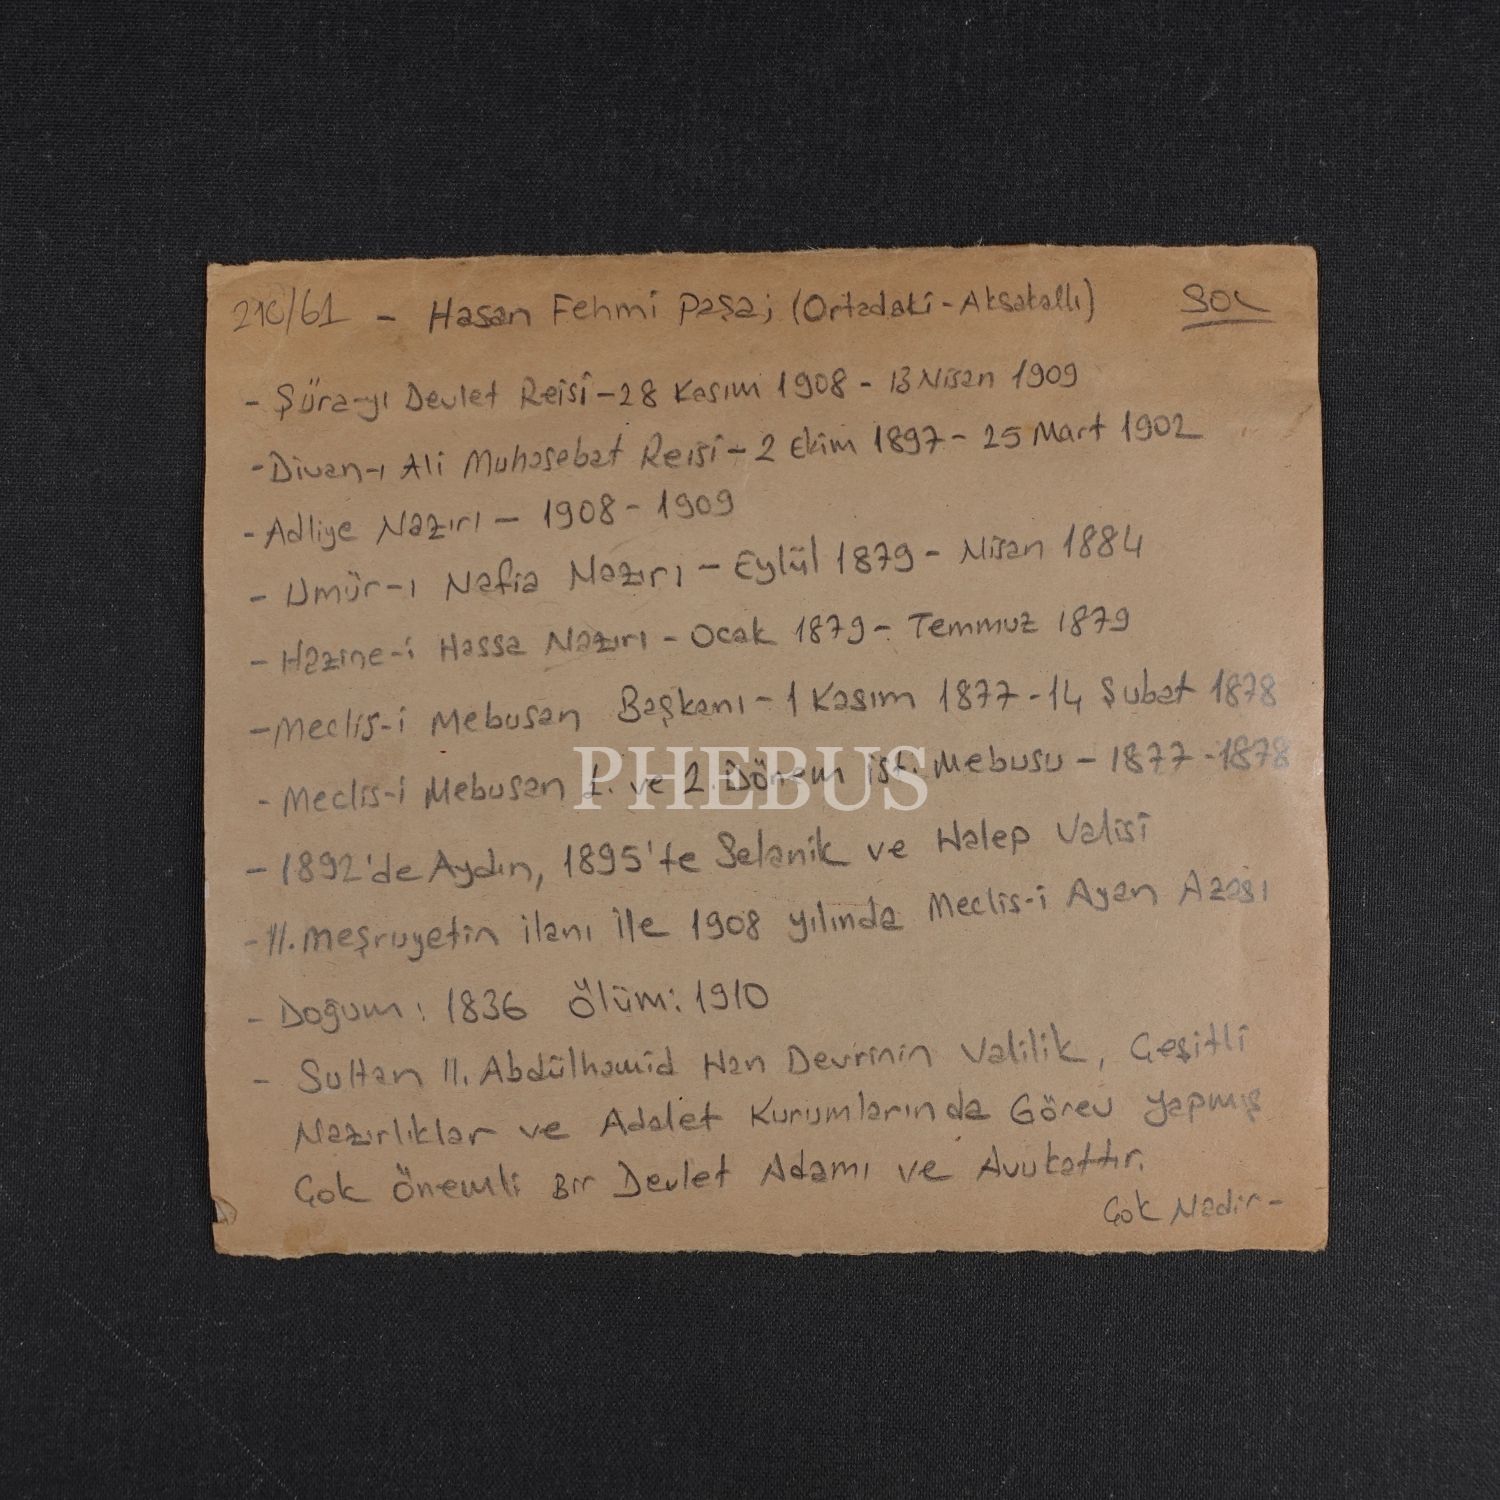 210/61 - Hasan Fehmi Paşa; (Ortadaki-Aksakallı) SOL
- Şûra-yı Devlet Reisi - 28 Kasım 1908 - 13 Nisan 1909
- Divan-ı Ali Muhasebat Reisi - 2 Ekim 1897 - 25 Mart 1902
- Adliye Nazırı - 1908 - 1909
- Umür-ı Nafia Nazırı - Eylül 1879 - Nisan 1884
- Hazine-i Hassa Nazırı - Ocak 1879 - Temmuz 1879
- Meclis-i Mebusan Başkanı - 1 Kasım 1877 - 14 Şubat 1878
- Meclis-i Mebusan 1. ve 2. Dönem ist. Mebusu - 1877 - 1878
PHEBUS
- 1892'de Aydın, 1895'te Selanik ve Halep Valisi
- II. Meşruyetin ilanı ile 1908 yılında Meclis-i Ayan Azası
- Doğum: 1836 Ölüm: 1910
- Sultan II. Abdülhamid Han Devrinin Valilik, Çeşitli
Nazırlıklar ve Adalet Kurumlarında Görev yapmış
Çok Önemli Bir Devlet Adamı ve Avukattır.
Çok Nadir -